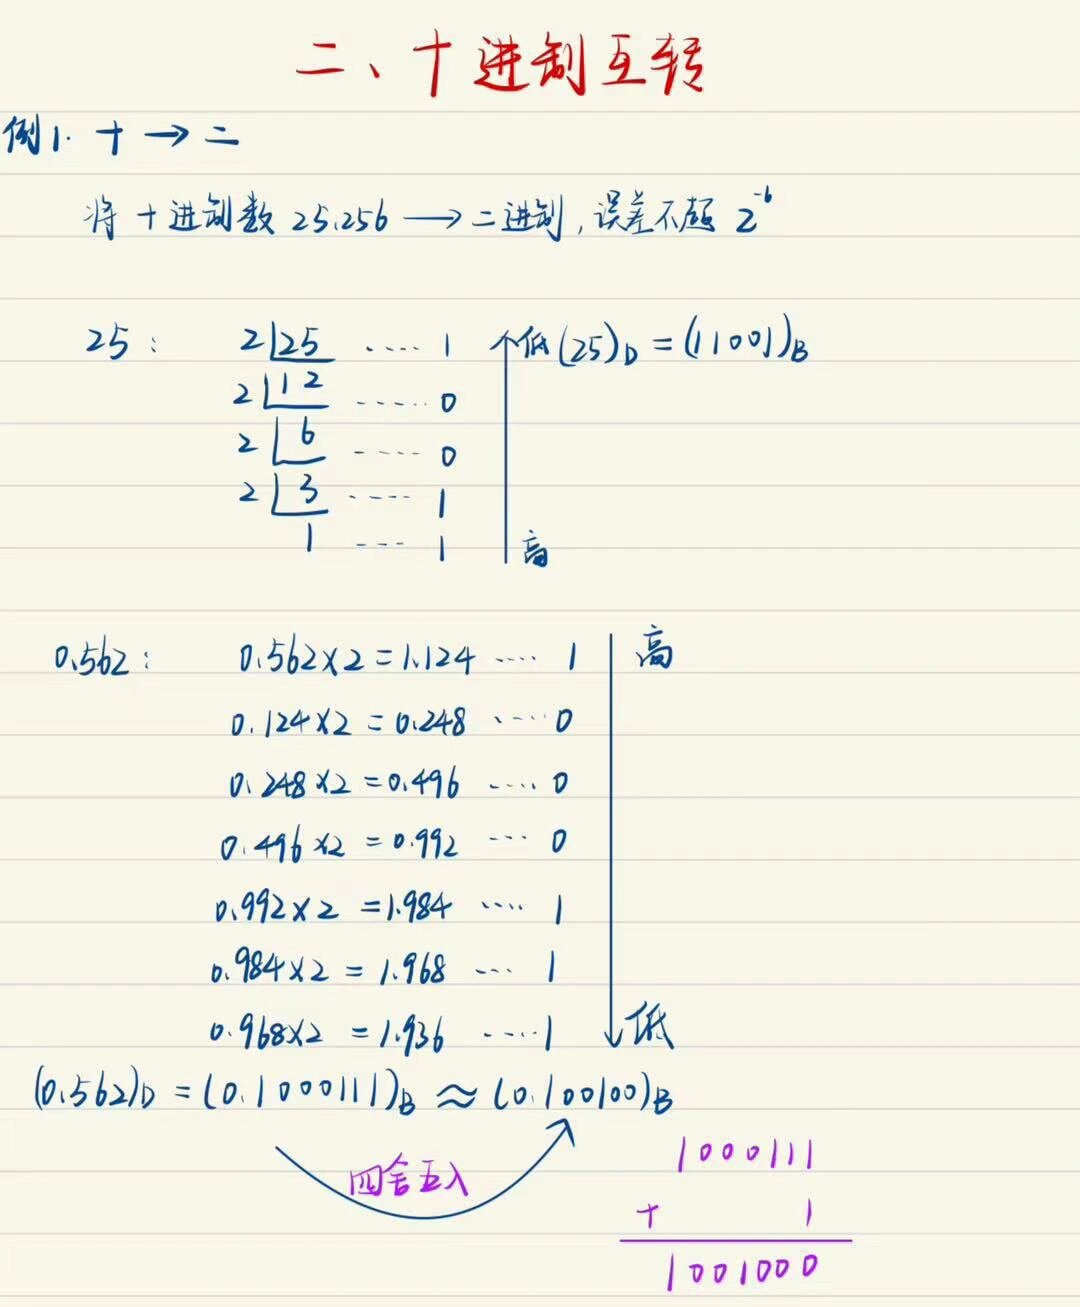 二、十进制互转
例1. 十→二
将十进制数 25.256 → 二进制, 误差不超 2^-6
25: 2|25 ···· 1 ↑低 (25)D = (11001)B
2|12 ····· 0
2|6 ····· 0
2|3 ···· 1
1 ···· 1 高
0.562: 0.562×2=1.124 ···· 1 高
0.124×2=0.248 ···· 0
0.248×2=0.496 ···· 0
0.496×2=0.992 ···· 0
0.992×2=1.984 ···· 1
0.984×2=1.968 ···· 1
0.968×2=1.936 ···· 1 ↓低
(0.562)D = (0.1000111)B ≈ (0.100100)B
四舍五入
1000111
+ 1
1001000